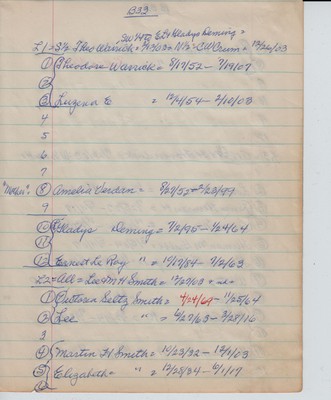 B33
SW 1/4 E Dr Gladys Deming =
L1 > S 1/2 Theo Warrick = 7/13/03 = N 1/2 - CW Crum = 12/26/03
① Theodore Warrick = 8/17/52 - 7/19/07
②
③ Luzena E = 12/4/54 - 2/10/08
4
5
6
7
"Mother" ⑧ Amelia Verdan = 8/27/52 - 2/28/99
9
⑩ Gladys Deming = 7/2/95 - 1/24/64
⑪
⑫ Ernest Le Roy " = 10/17/84 - 7/2/63
L2 = All = Lee & M H Smith = 12/29/03
① Victoria Seltz Smith = 4/24/64 - 11/25/64
② Lee " = 6/29/63 - 3/28/16
3
④ Martin H Smith = 10/23/32 - 12/1/03
⑤ Elizabeth " = 12/28/34 - 6/1/17
⑥